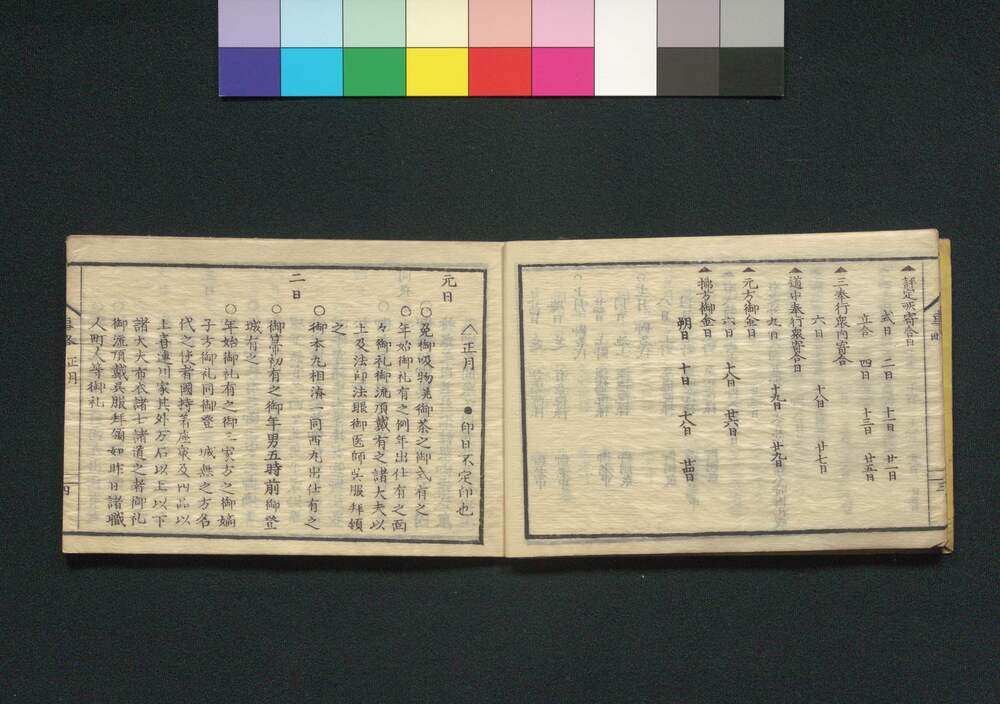 ▲評定所寄合日
式日 二日 十一日 廿一日
立合 四日 十三日 廿五日
▲三奉行衆内寄合
六日 十八日 廿七日
▲道中奉行衆寄合日
九日 十九日 廿九日
▲元方御金日
六日 十六日 廿六日
▲払方御金日
朔日 十日 十八日 廿四日
三
八正月 ●印日不定印也
元日
○兎御吸物
御茶之御式有之
○年始御礼有之例年出仕有之面
々御礼御流頂戴有之諸大夫以
上及法印法眼御医師呉服拝領
之
○御本丸相済一同西丸出仕有之
二日
○御
初有之御年男五時前御登
城有之
○年始御礼有之御三家方之御嫡
子方御礼同御登 城無之方名
代之使者國持着座衆及四品以
上喜連川家其外万石以上以下
諸大夫布衣諸士諸道之者御礼
御流頂戴呉服拝領如昨日諸職
人町人等御礼
正月
四